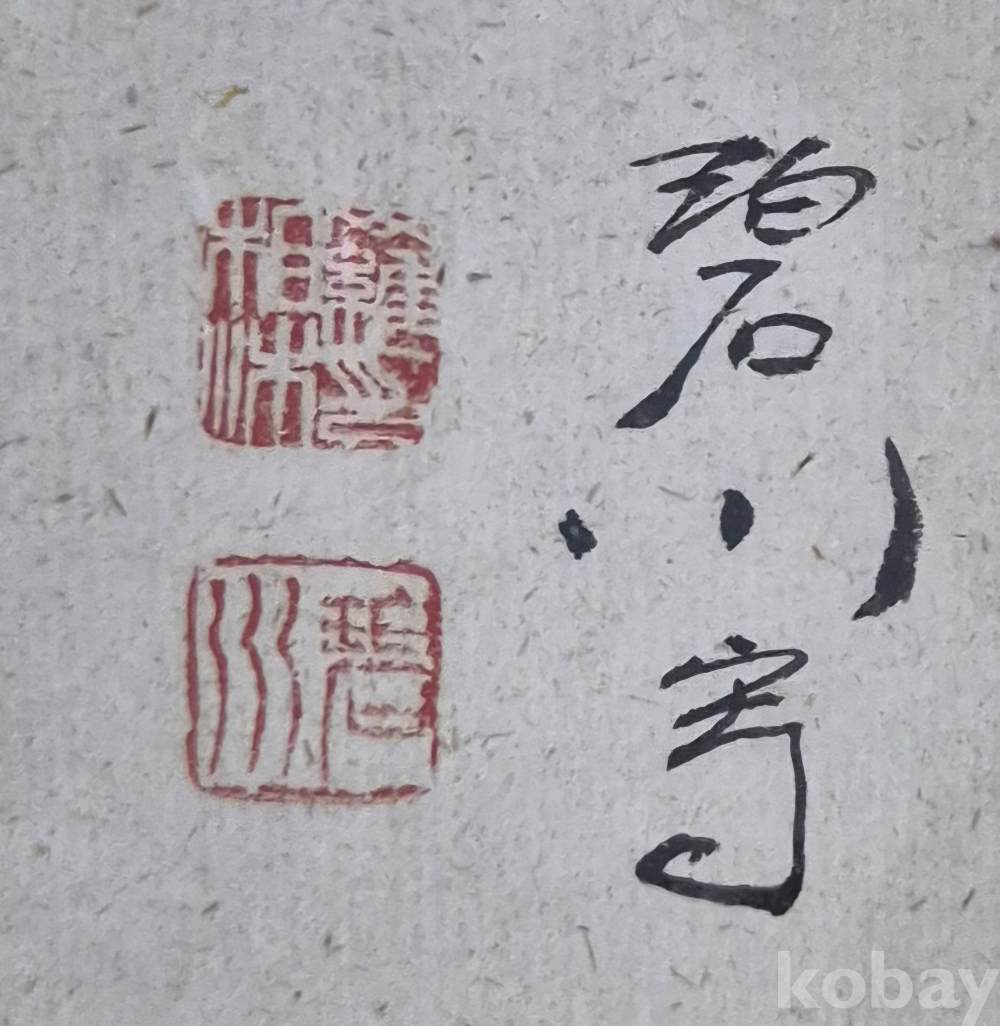 碧川寫
碧川
kobay